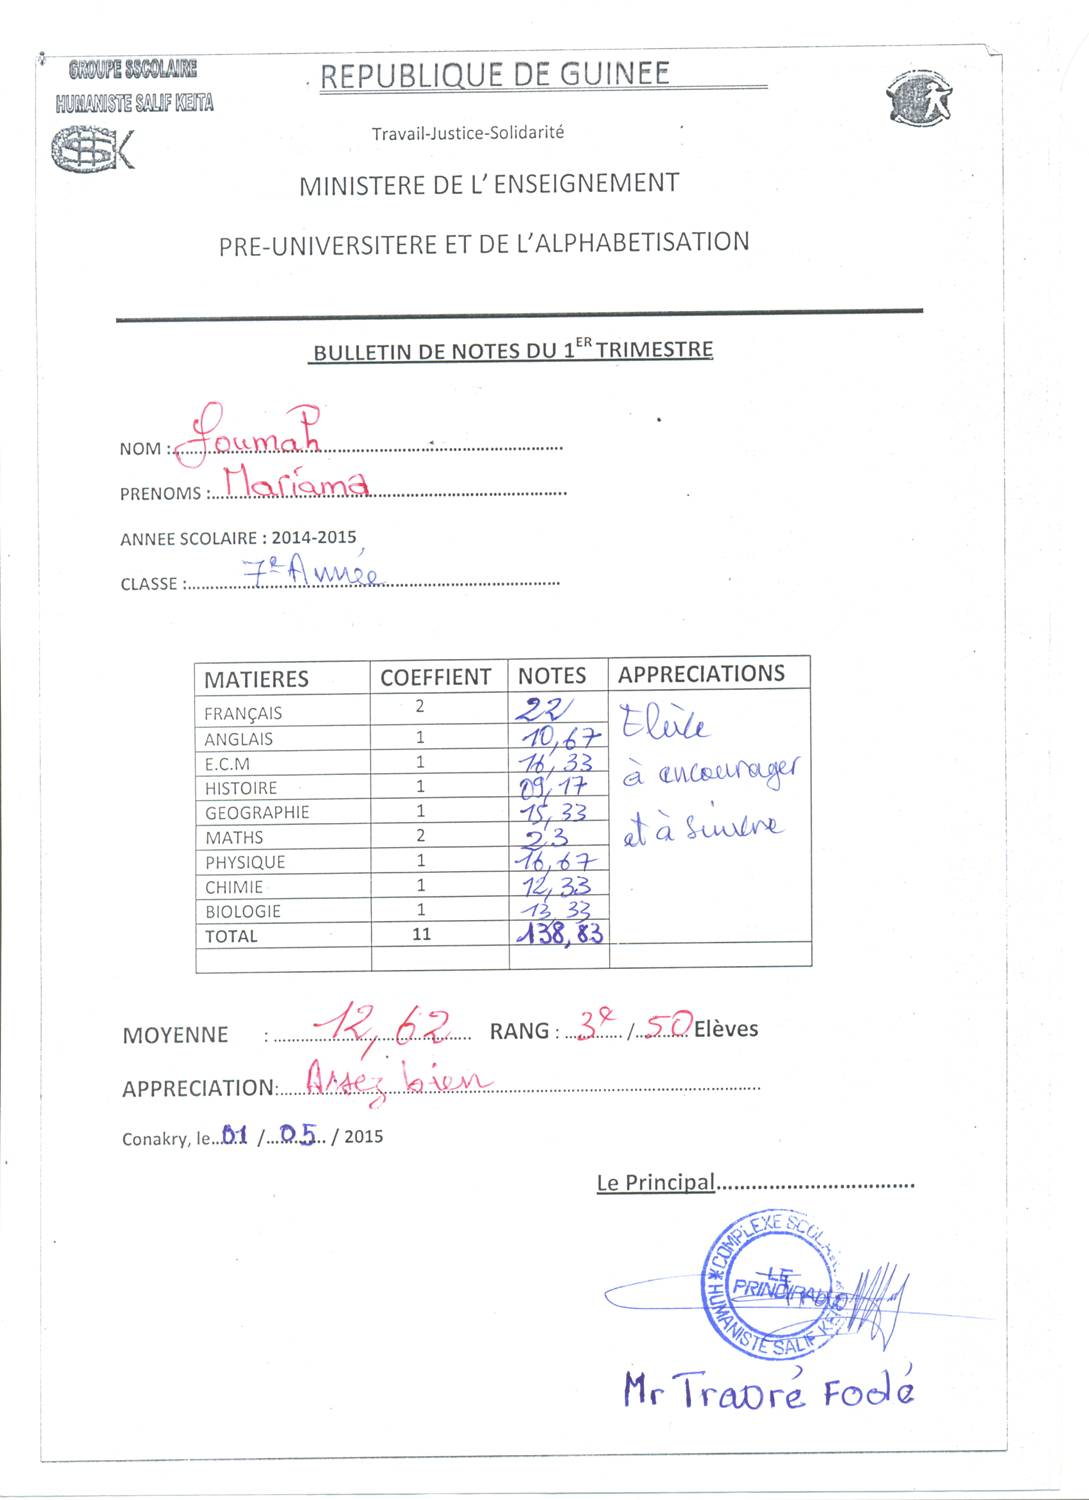 GROUPE SSCOLAIRE
HUMANISTE SALIF KEITA
REPUBLIQUE DE GUINEE
Travail-Justice-Solidarité
MINISTERE DE L' ENSEIGNEMENT
PRE-UNIVERSITERE ET DE L'ALPHABETISATION
BULLETIN DE NOTES DU 1ER TRIMESTRE
NOM : Soumah
PRENOMS : Mariama
ANNEE SCOLAIRE : 2014-2015
CLASSE : 7e Année
MATIERES COEFFIENT NOTES APPRECIATIONS
FRANÇAIS 2 22 Elève
ANGLAIS 1 10,67
E.C.M 1 16,33 à encourager
HISTOIRE 1 09,17
GEOGRAPHIE 1 15,33 et à suivre
MATHS 2 23
PHYSIQUE 1 16,67
CHIMIE 1 12,33
BIOLOGIE 1 13,33
TOTAL 11 138,83
MOYENNE : 12,62 RANG : 3e / 50 Elèves
APPRECIATION: Assez bien
Conakry, le 01 / 05 / 2015
Le Principal
COMPLEXE SCOLA
HUMANISTE SALIF KEI
LE
PRINCIPAL
Mr Traoré Fodé